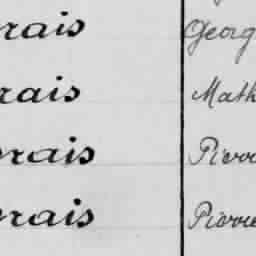 rais Georg
rais Math
rais Pierr
rais Pierre